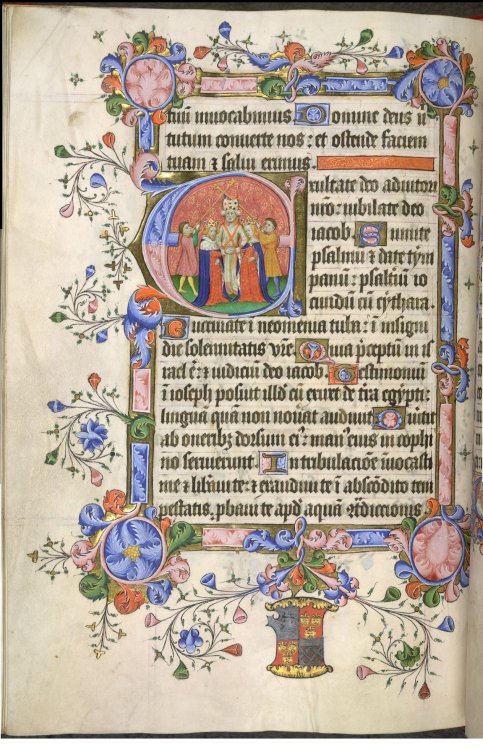 tuū inuocabimus. Domine deus ū
tutum conuerte nos: et ostende faciem
tuam ⁊ salui erimus.
Exultate deo adiutori
nr̄o: iubilate deo
iacob. Sumite
psalmū ⁊ date tym
panū: psaltīū io
cundū cū cythara.
Bucinate ī neomenia tuba: ī insigni
die solennitatis vr̄e. Quia p̄ceptū in is
rael ē: ⁊ iudiciū deo iacob. Testimoniū
ī ioseph posuit illd̄ cū exiret de tr̄a egypti:
linguā quā non nouat̄ audiuit. Diūtit
ab oneribꝫ dorsum eiꝰ: manꝰ eius in cophi
no seruierunt. In tribulacōne īuocasti
me ⁊ libāui te: ⁊ exaudiui te ī abscōdito tem
pestatis. ꝓbaui te apd̄ aquā ꝯtͣdictionis.